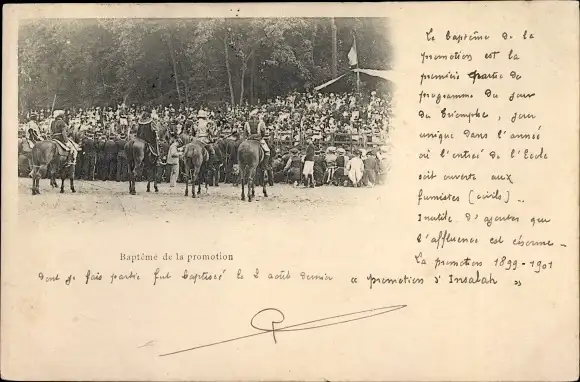 Le baptême de la
promotion est la
première partie du
programme du jour
du Triomphe, jour
unique dans l'année
où l'entrée de l'Ecole
soit ouverte aux
fumistes (civils) ..
Inutile d'ajouter que
l'affluence est énorme _
La promotion 1899-1901
Baptême de la promotion
dont je fais partie fut baptisée le 2 août dernier « promotion d'Insalah »